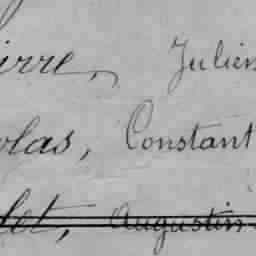 ierre, Julien
olas, Constant
let, Augustin